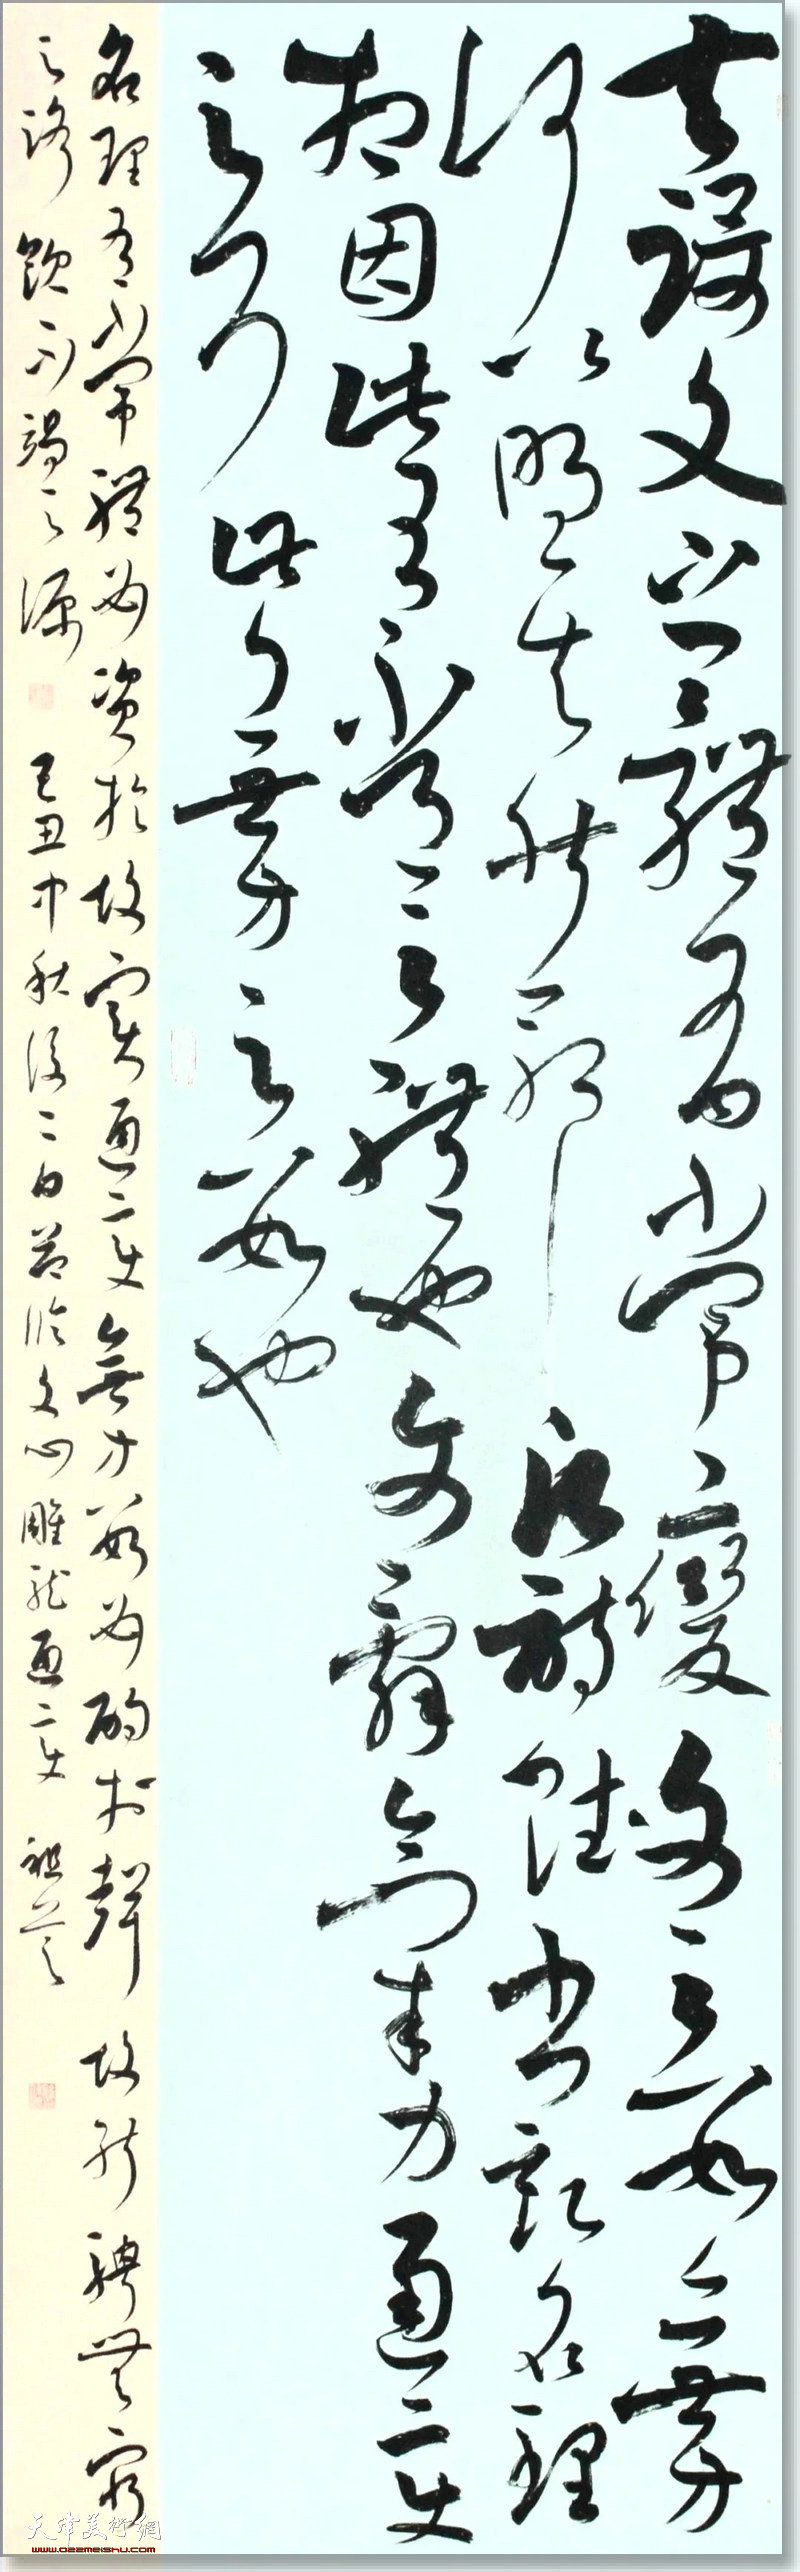 夫設文之體有常變文之數無方
何以明其然耶凡詩賦書記名理
相因此有常之體也文辭氣力通變
則久此無方之數也
名理有常體必資於故實通變無方數必酌於聲故能騁無窮
之路飲不竭之源 己丑中秋後二日節臨文心雕龍通變 祖
天津美術網
www.022meishu.com